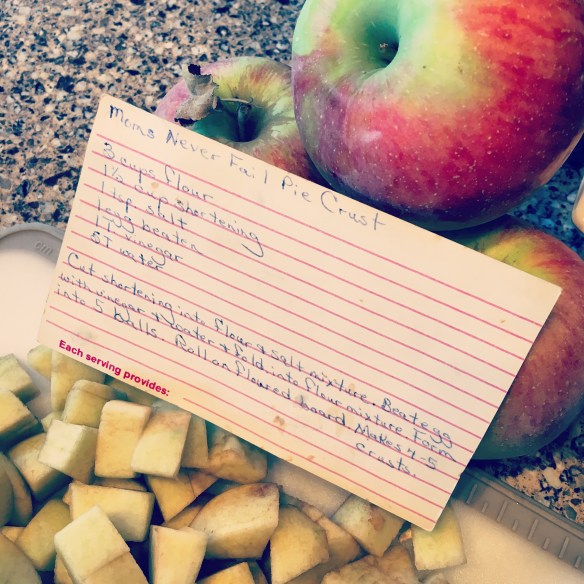 Moms Never Fail Pie Crust
3 cups flour
1½ cup shortening
1 tsp. salt
1 egg beaten
1 T vinegar
5 T water
Cut shortening into flour & salt mixture. Beat egg
with vinegar & water & fold into flour mixture Form
into 5 balls. Roll on floured board Makes 4-5
crusts.
Each serving provides:
cm